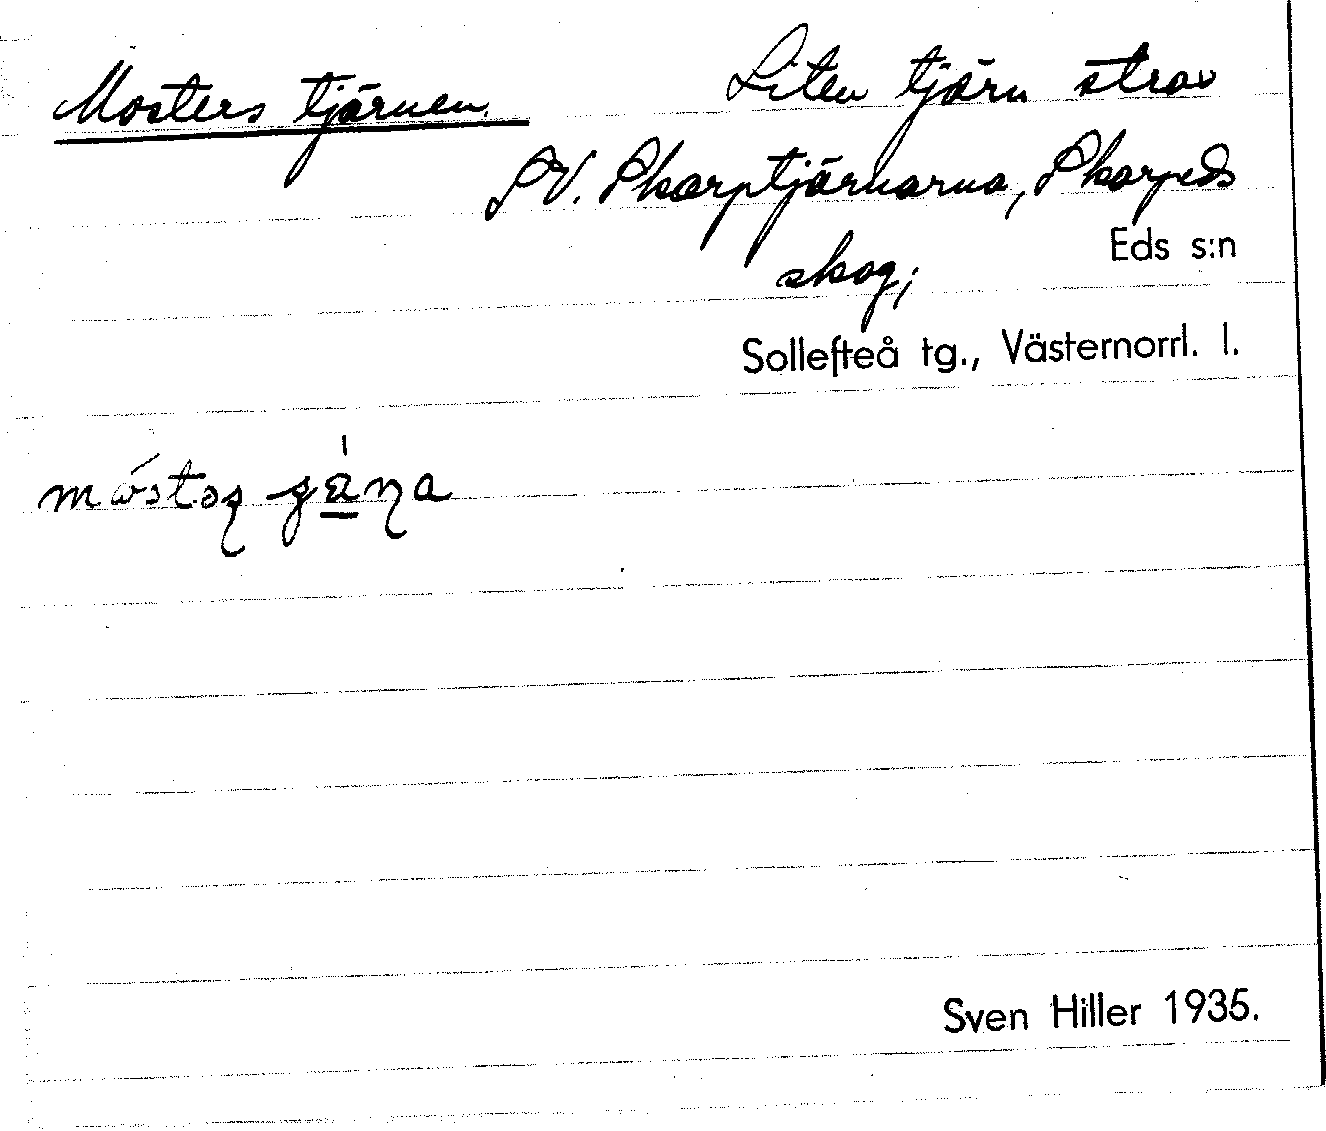 Mosters tjärnen.
Liten tjärn strax
SV. Skarptjärnarna, Skarpeds
skog;
Eds s:n
Sollefteå tg., Västernorrl. l.
Sven Hiller 1935.